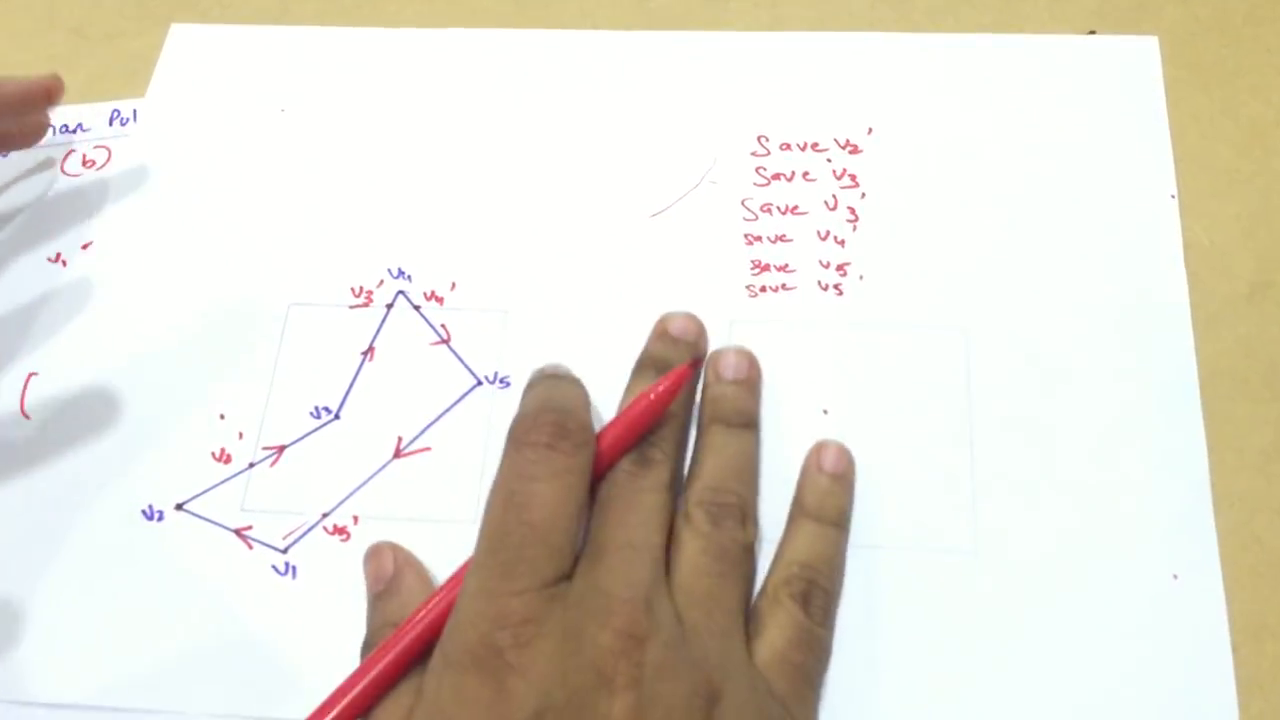 Pol
(b)
v1'
(
save v2'
save v3
save v3'
save v4'
save v5
save v5'
v4
v3'
v4'
v5
v3
v2'
v2
v5'
v1